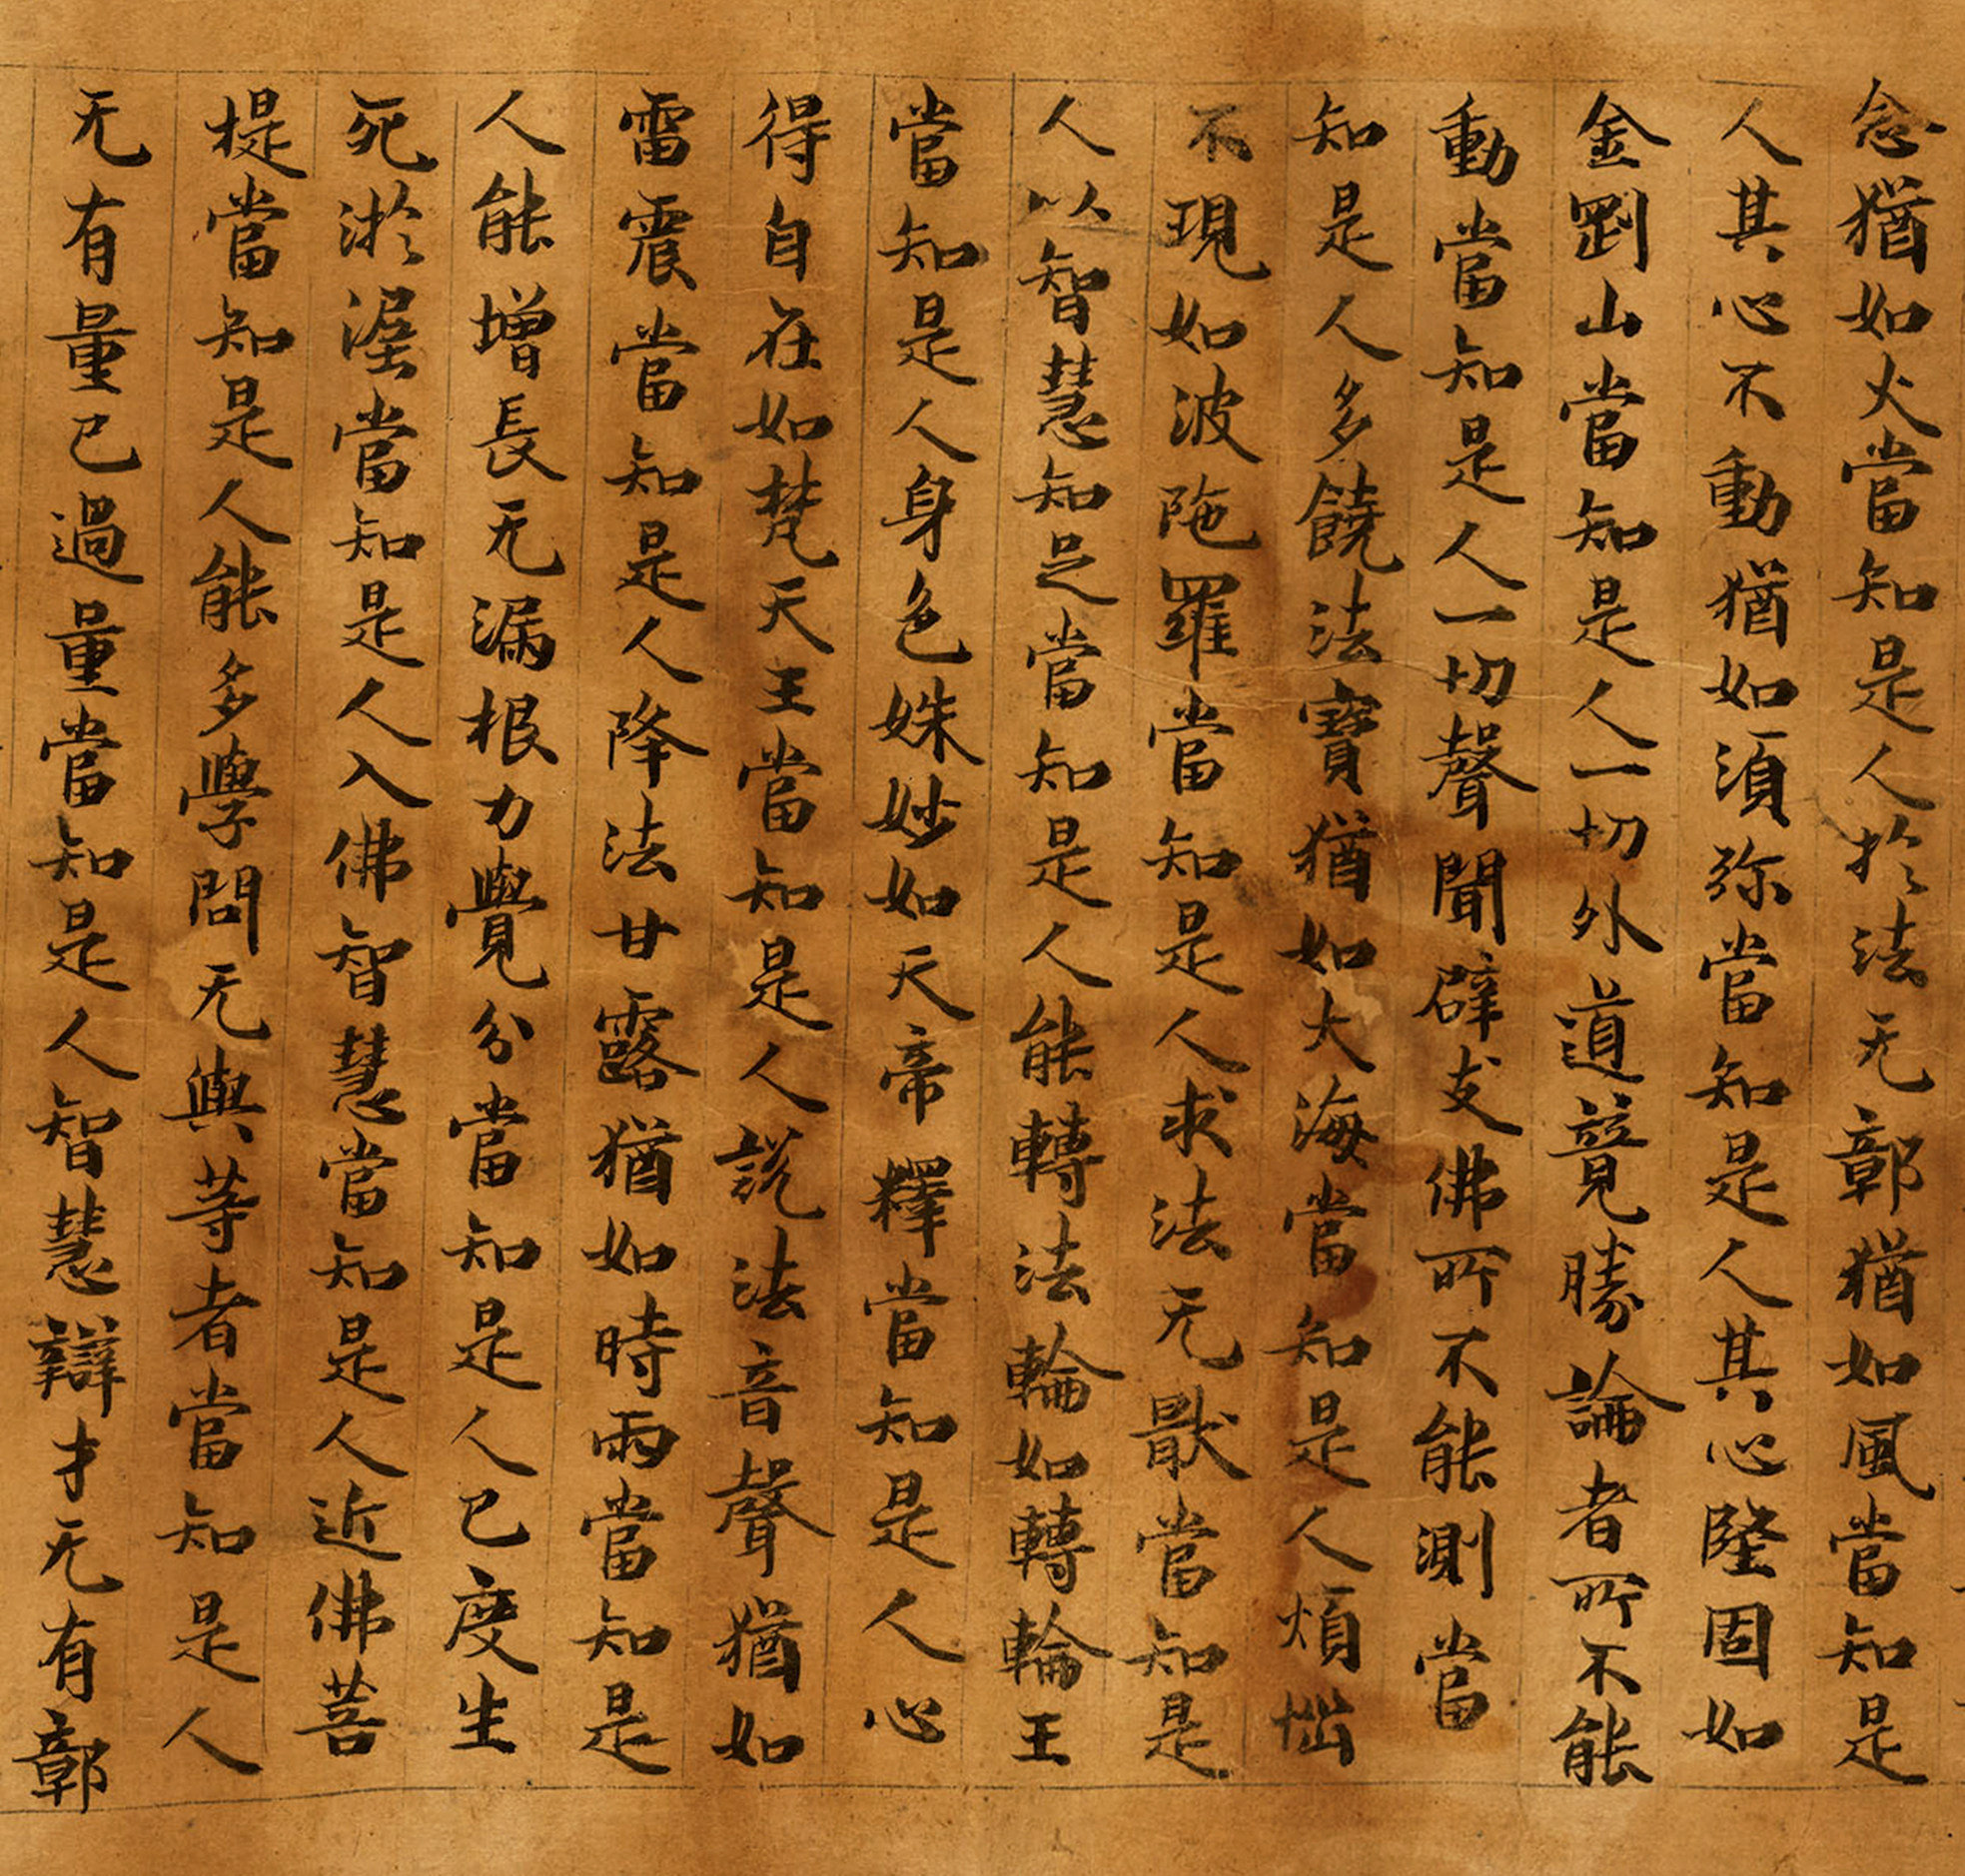 念猶如火當知是人於法无鄣猶如風當知是
人其心不動猶如湏弥當知是人其心隆固如
金剛山當知是人一切外道競勝論者所不能
動當知是人一切聲聞辟支佛所不能測當
知是人多饒法寶猶如大海當知是人煩惱
不現如波陁羅當知是人求法无猒當知是
人以智慧知足當知是人能轉法輪如轉輪王
當知是人身色姝妙如天帝釋當知是人心
得自在如梵天王當知是人說法音聲猶如
雷震當知是人降法甘露猶如時雨當知是
人能增長无漏根力覺分當知是人已度生
死淤溼當知是人入佛智慧當知是人近佛菩
提當知是人能多學問无與等者當知是人
无有量已過量當知是人智慧辯才无有鄣